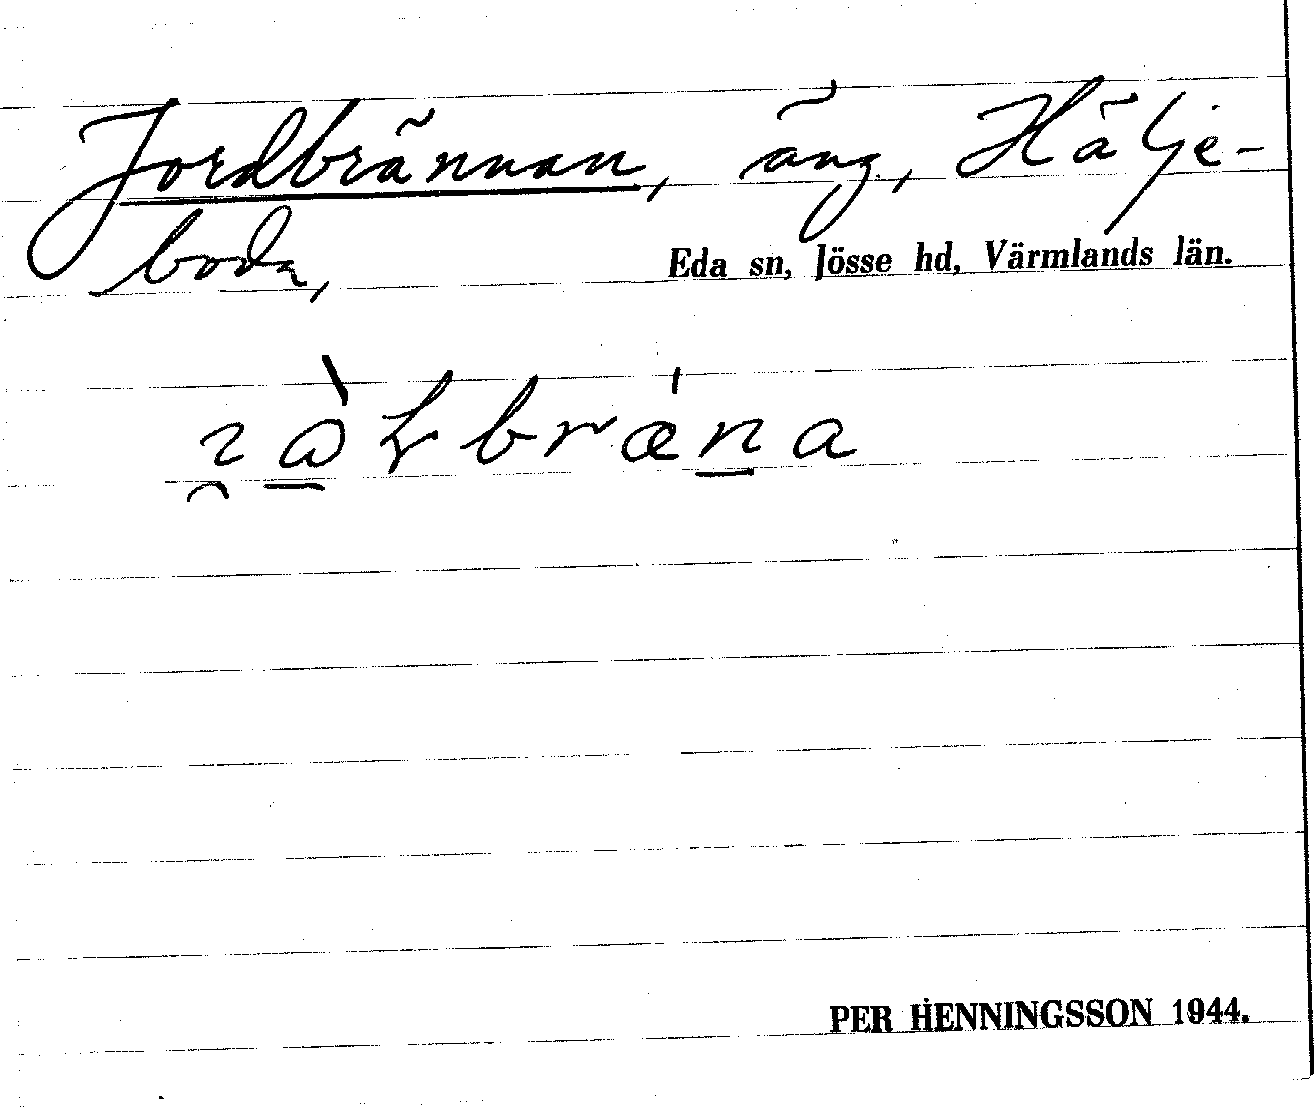 Jordbrännan, äng, Hälje-
boda,
Eda sn, Jösse hd, Värmlands län.
PER HENNINGSSON 1944.